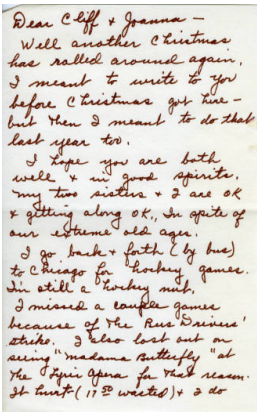 Dear Cliff & Joanna -
Well another Christmas
has rolled around again.
I meant to write to you
before Christmas got here -
but then I meant to do that
last year too.
I hope you are both
well & in good spirits.
My two sisters & I are OK
& getting along OK., In spite of
our extreme old ages.
I go back & forth (by bus)
to Chicago for hockey games.
I'm still a hockey nut.
I missed a couple games
because of the Bus Drivers'
strike. I also lost out on
seeing "Madama Butterfly" at
the Lyric Opera for that reason.
It hurt (17 50 wasted) & I do